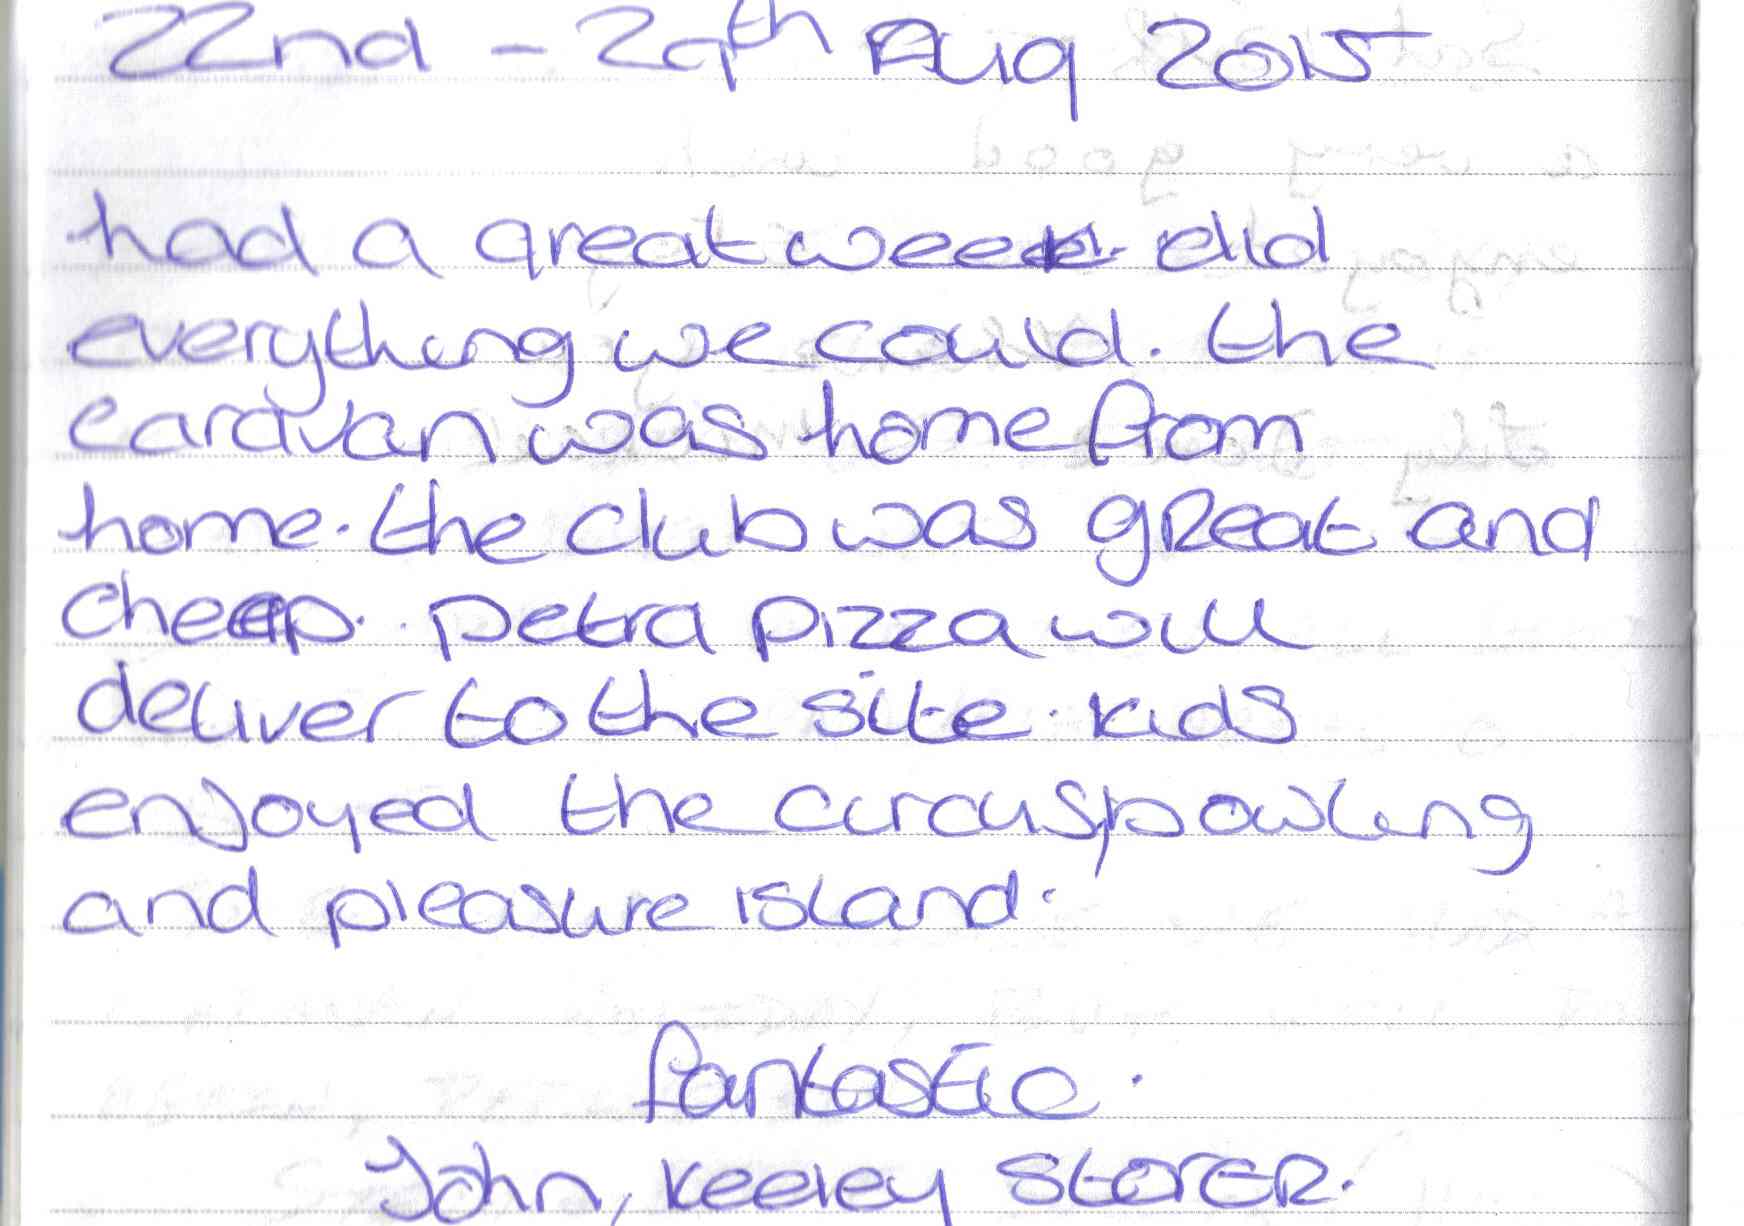 22nd - 29th Aug 2015
had a great week. did
everything we could. the
caravan was home from
home. the club was gReat and
cheap. petra pizza will
deliver to the site. kids
enjoyed the circus, bowling
and pleasure island.
fantastic.
John, Keeley STORER.